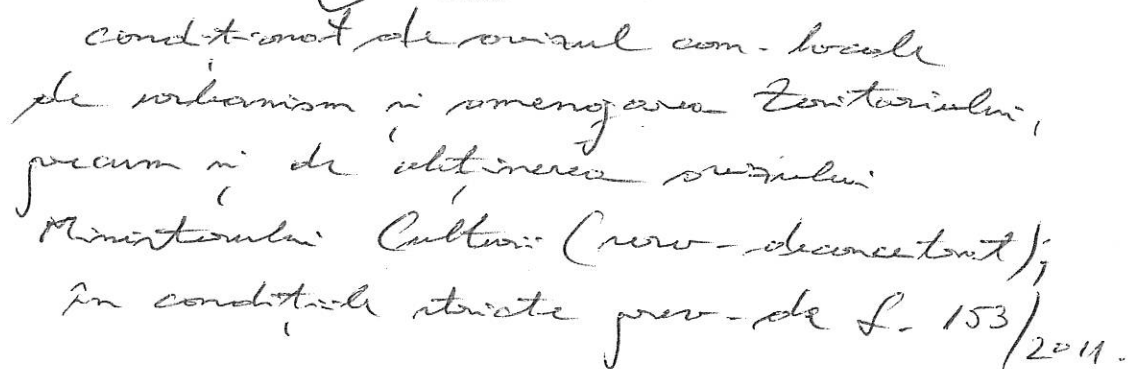 condiționat de avizul com. locale
de urbanism și amenajarea teritoriului,
precum și de obținerea avizului
Ministerului Culturii (serv. deconcentrat);
în condițiile stricte prev. de L. 153/2011.